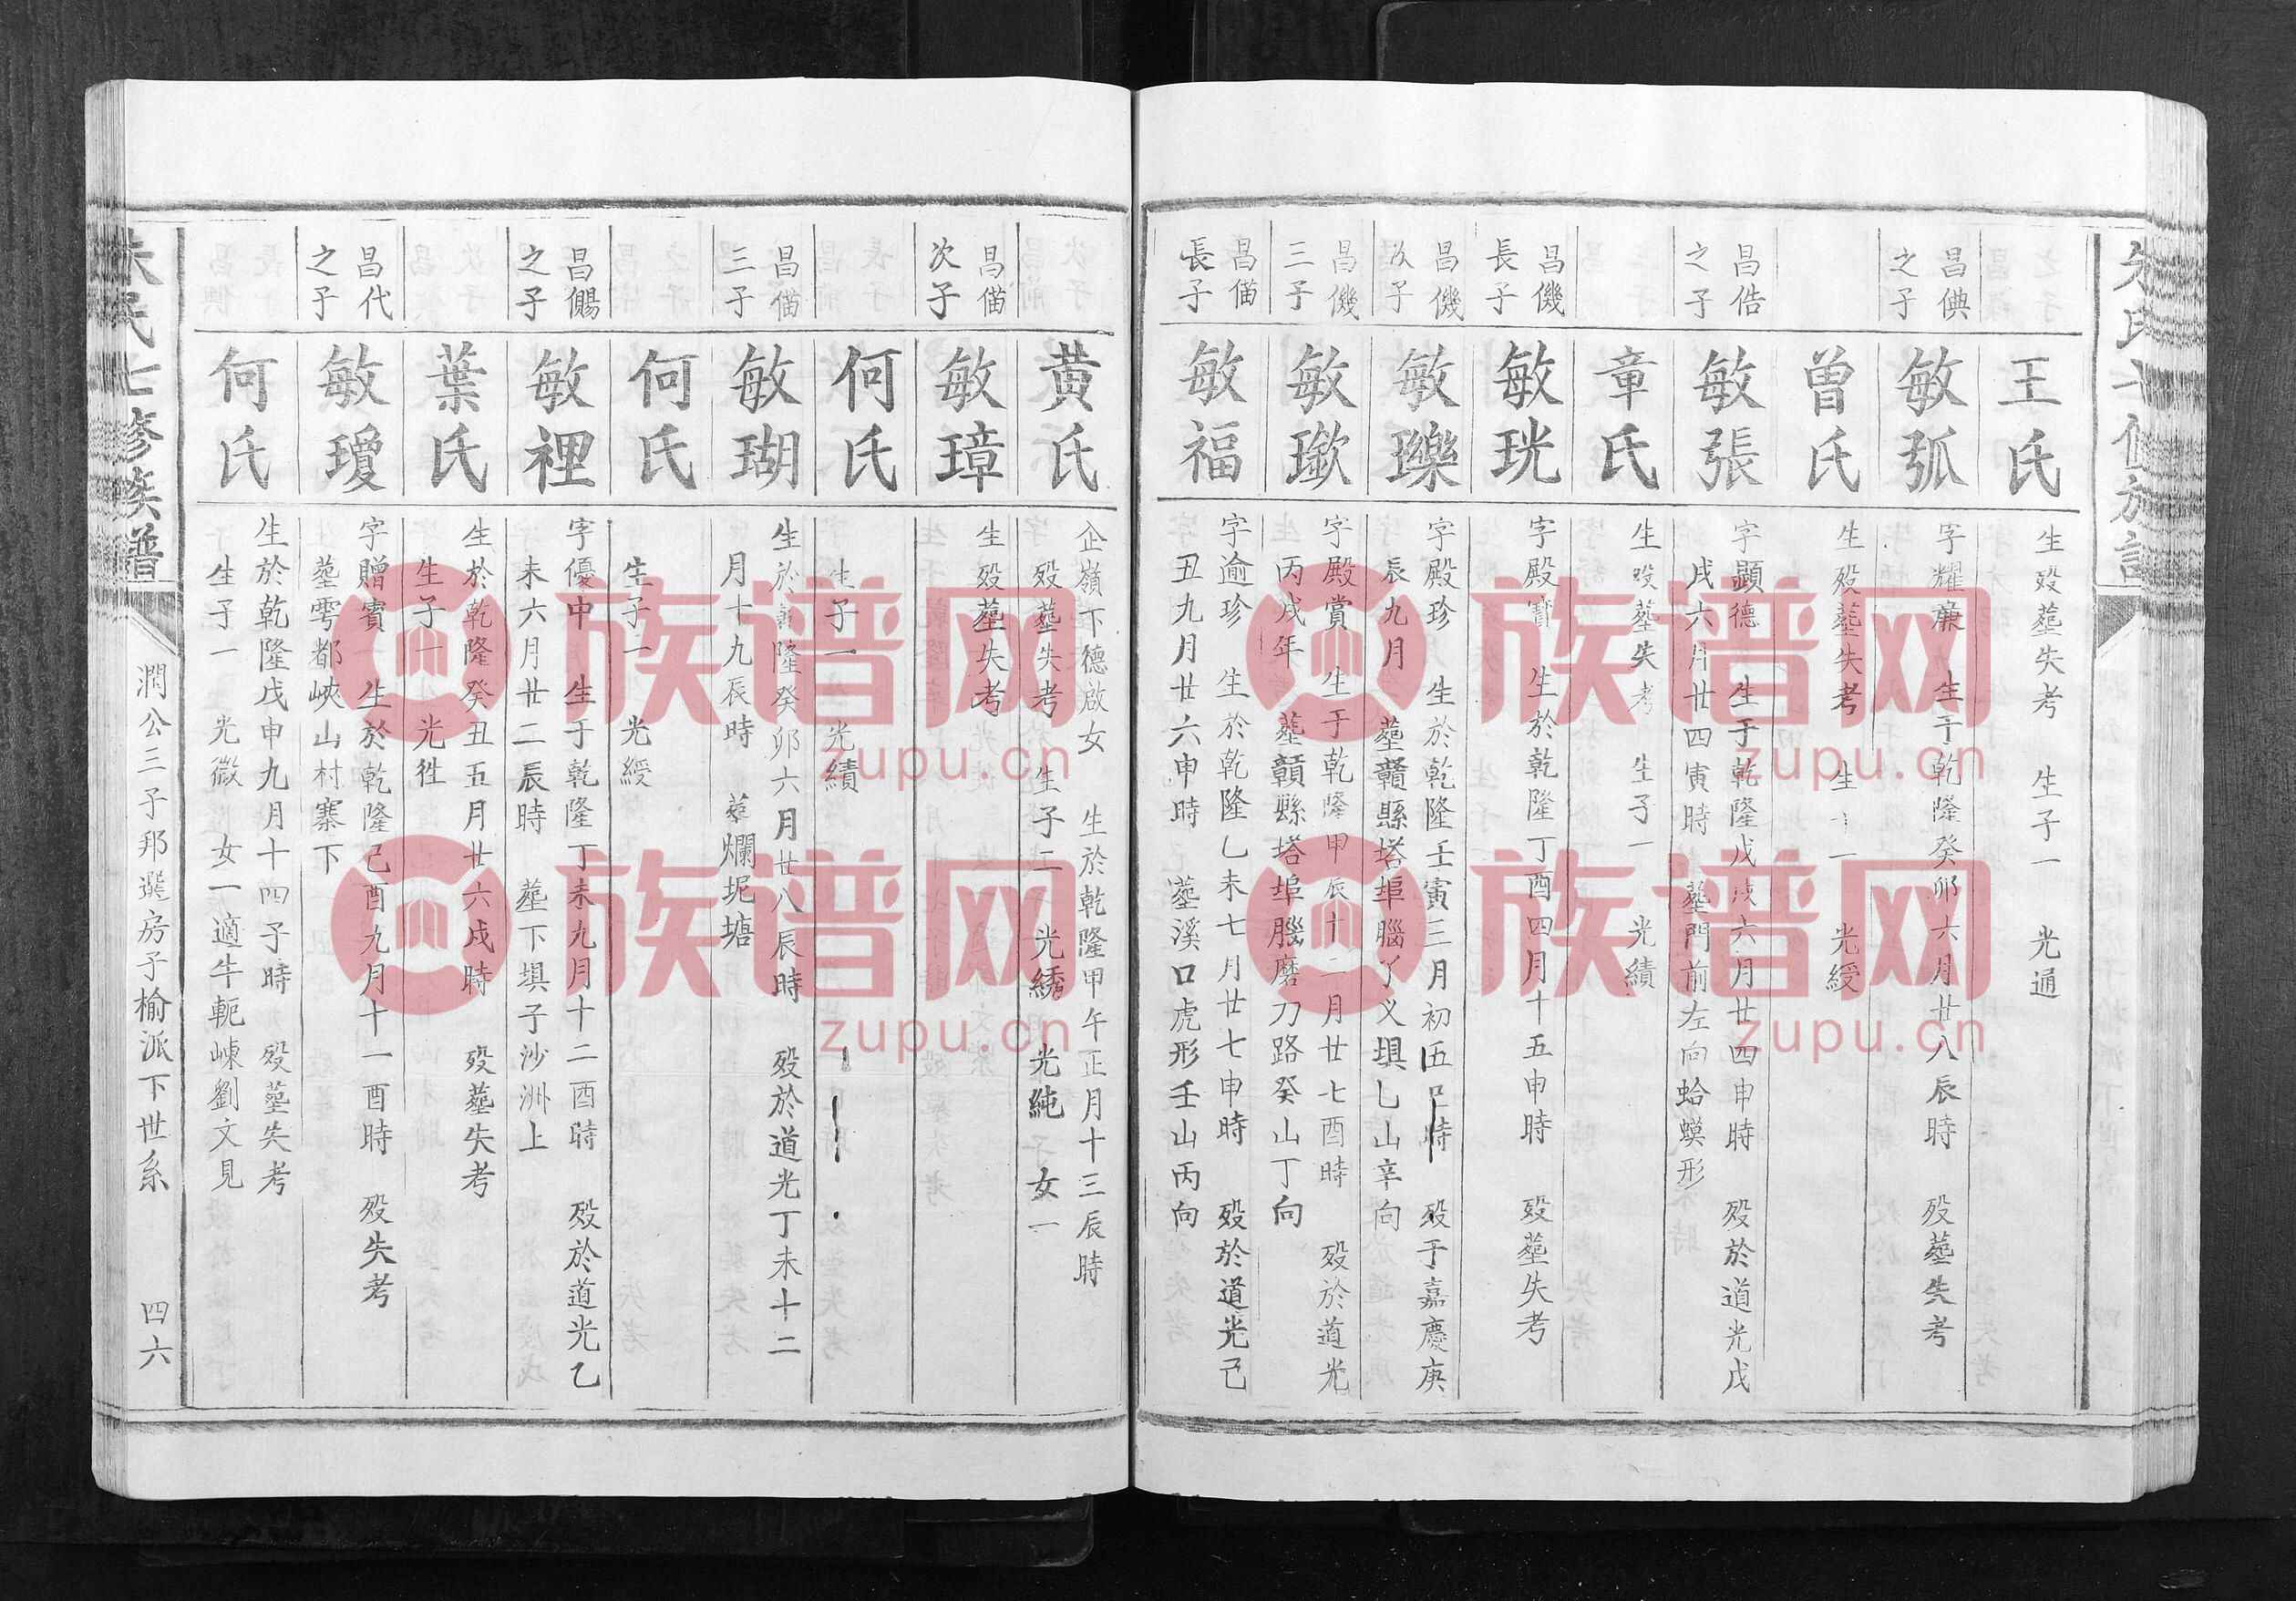 王氏
生殁塟失考 生子一 光通
昌倎
之子
敏弧
字耀廉 生于乾隆癸卯六月廿八辰時 殁塟失考
曾氏
生殁塟失考 生 一 光綬
昌俈
之子
敏張
字顯德 生于乾隆戊戌六月廿四申時 殁於道光戊
戌六月廿四寅時 塟門前左向蛤蟆形
章氏
生殁塟失考 生子一 光績
昌僟
長子
敏珖
字殿寶 生於乾隆丁酉四月十五申時 殁塟失考
昌僟
次子
敏瓅
字殿珍 生於乾隆壬寅三月初五 時 殁于嘉慶庚
辰九月 塟贛縣塔埠腦丫义垻乚山辛向
昌僟
三子
敏㻕
字殿賞 生于乾隆甲辰十二月廿七酉時 殁於道光
丙戌年 塟贛縣塔埠腦磨刀路癸山丁向
昌偤
長子
敏福
字逾珍 生於乾隆乙未七月廿七申時 殁於道光己
丑九月廿六申時 塟溪口虎形壬山丙向
黄氏
企嶺下德啟女 生於乾隆甲午正月十三辰時
殁塟失考 生子二 光綉 光純 女一
昌偤
次子
敏璋
生殁塟失考
何氏
生子一 光績
昌偤
三子
敏瑚
生於乾隆癸卯六月廿八辰時 殁於道光丁未十二
月十九辰時 塟爛坭塘
何氏
生子一 光綬
昌儩
之子
敏裡
字優中 生于乾隆丁未九月十二酉時 殁於道光乙
未六月廿二辰時 塟下垻子沙洲上
葉氏
生於乾隆癸丑五月廿六戍時 殁塟失考
生子一 光徃
昌代
之子
敏瓊
字贈賓 生於乾隆己酉九月十一酉時 殁失考
塟雩都峽山村寨下
何氏
生於乾隆戊申九月十四子時 殁塟失考
生子一 光微 女一適牛軛崠劉文見
朱氏七修族譜
潤公三子邦選房子榆派下世系 四六
族谱网
zupu.cn
族谱网
zupu.cn
族谱网
zupu.cn
族谱网
zupu.cn